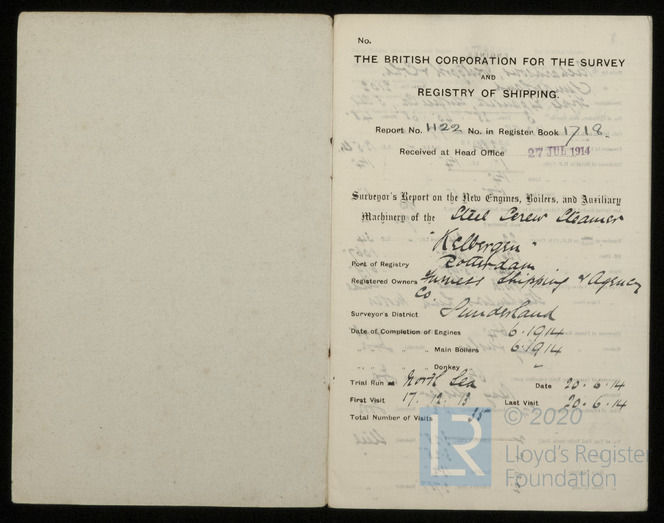 No.
THE BRITISH CORPORATION FOR THE SURVEY
AND
REGISTRY OF SHIPPING.
Report No. 1122 No. in Register Book 1718
Received at Head Office 27 JUL 1914
Surveyor's Report on the New Engines, Boilers, and Auxiliary
Machinery of the Steel Screw Steamer
"Kelbergen"
Port of Registry Rotterdam
Registered Owners Furness Shipping & Agency
Co
Surveyor's District Sunderland
Date of Completion of Engines 6.1914
" " " Main Boilers 6.1914
" " " Donkey "
Trial Run at North Sea Date 20.6.14
First Visit 17.12.13 Last Visit 20.6.14
Total Number of Visits 35
LR
© 2020
Lloyd's Register
Foundation